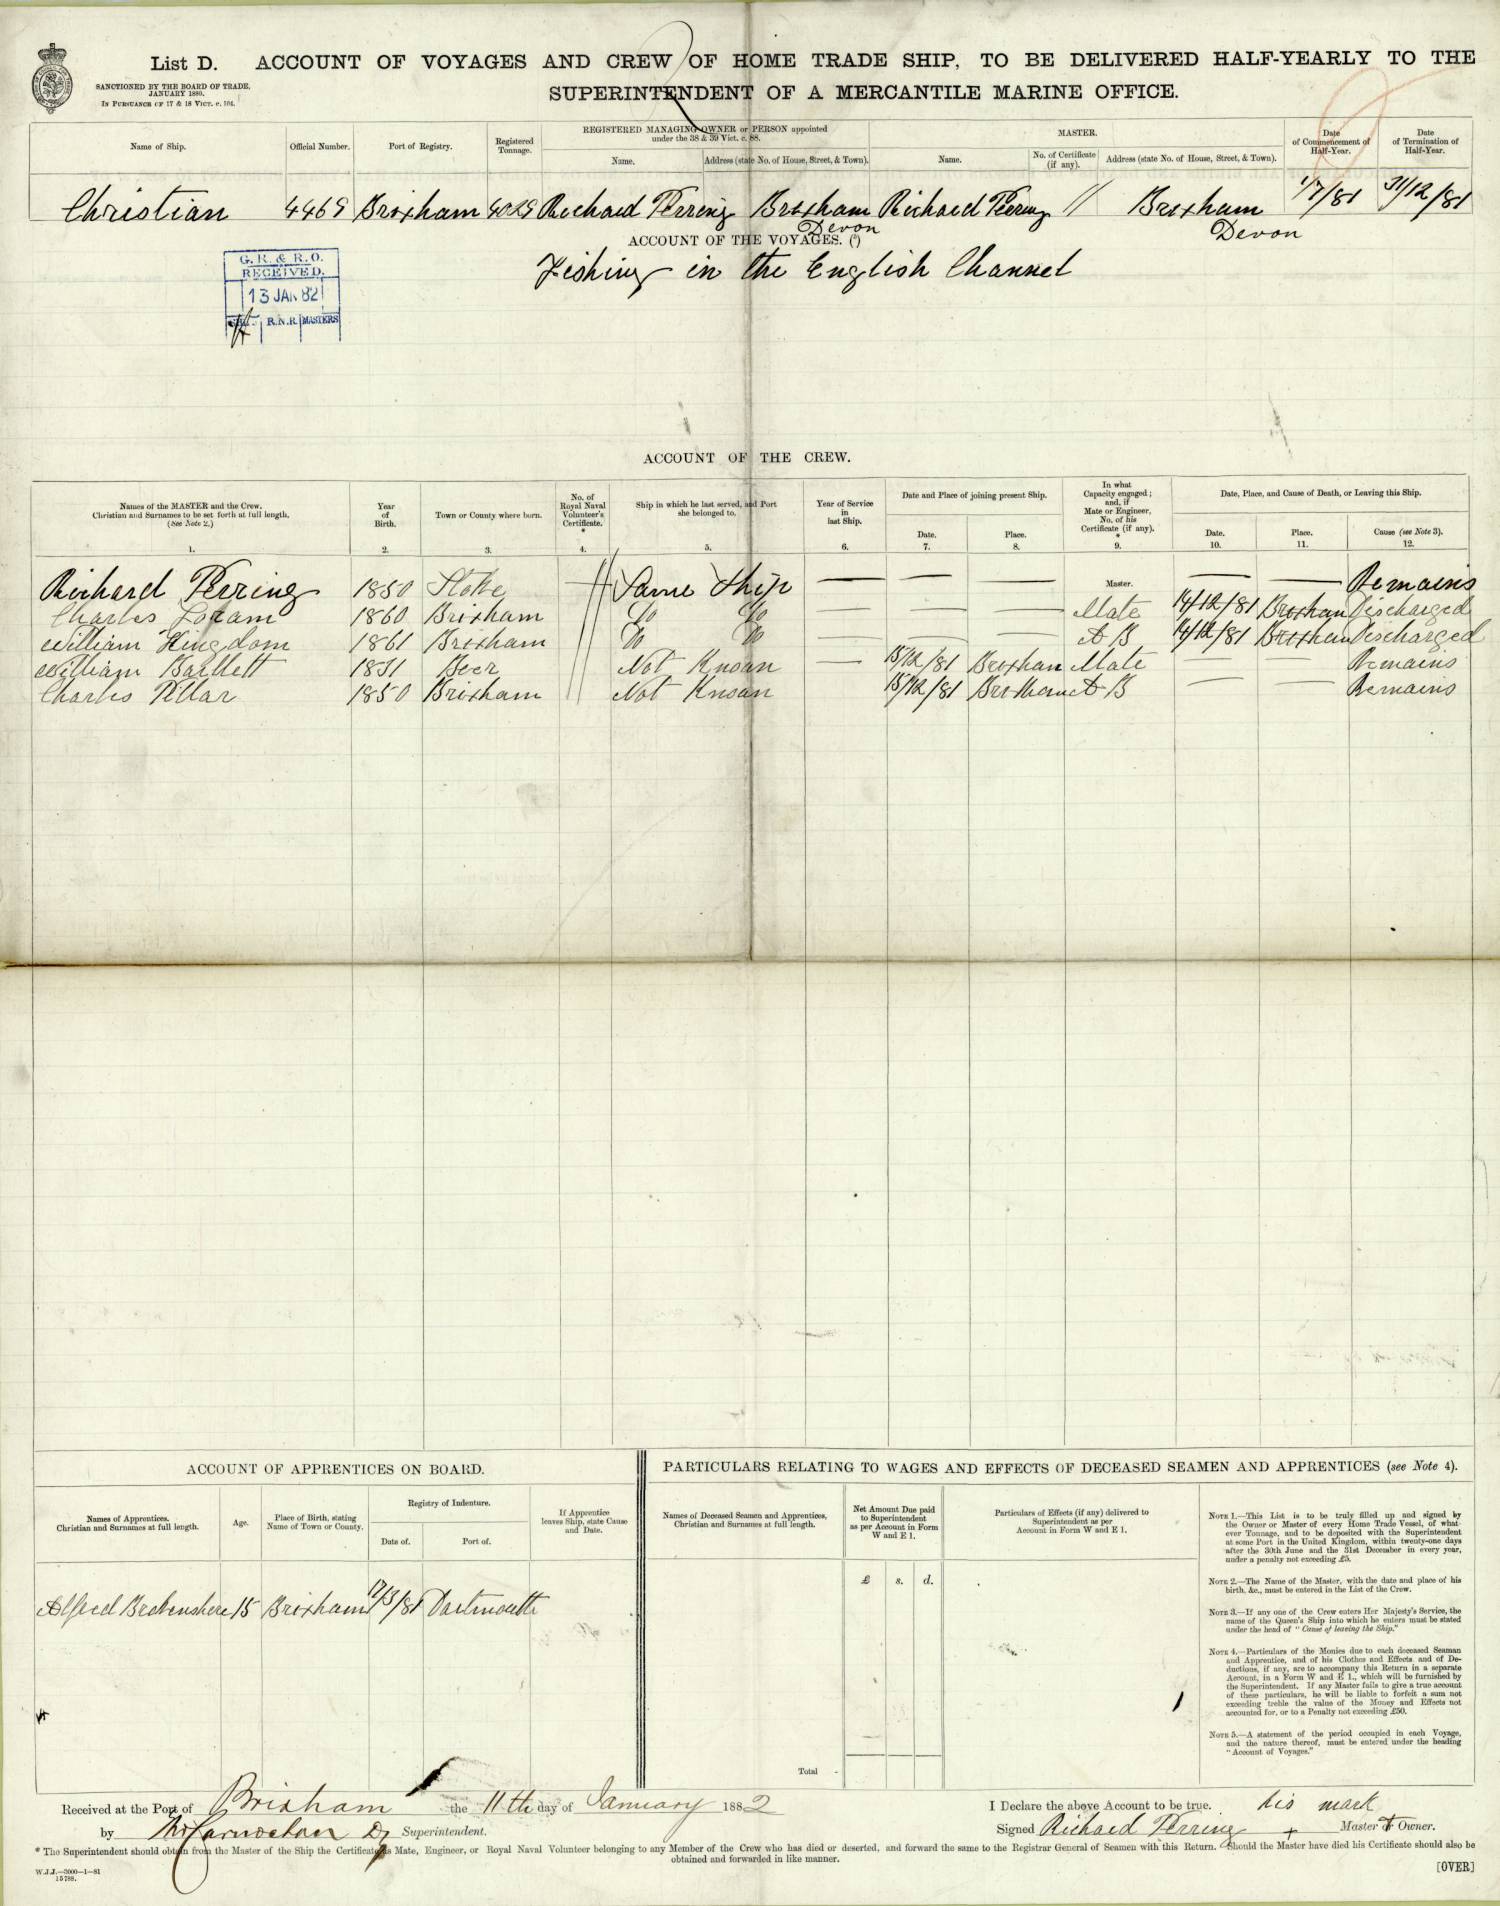 List D. ACCOUNT OF VOYAGES AND CREW OF HOME TRADE SHIP, TO BE DELIVERED HALF-YEARLY TO THE
SUPERINTENDENT OF A MERCANTILE MARINE OFFICE.
SANCTIONED BY THE BOARD OF TRADE,
JANUARY 1880.
IN PURSUANCE OF 17 & 18 VICT. c. 104.
Name of Ship. Official Number. Port of Registry. Registered Tonnage. REGISTERED MANAGING OWNER or PERSON appointed under the 38 & 39 Vict. c. 88. MASTER. Date of Commencement of Half-Year. Date of Termination of Half-Year.
Name. Address (state No. of House, Street, & Town). Name. No. of Certificate (if any). Address (state No. of House, Street, & Town).
Christian 4469 Brixham Richard Perring Brixham Richard Perring // Brixham 1/7/81 31/12/81
Devon Devon
ACCOUNT OF THE VOYAGES. (5)
Fishing in the English Channel
G. R. & R. O.
RECEIVED.
13 JAN 82
R.N.R. MASTERS
ACCOUNT OF THE CREW.
Names of the MASTER and the Crew. Christian and Surnames to be set forth at full length. (See Note 2.) Year of Birth. Town or County where born. No. of Royal Naval Volunteer's Certificate. * Ship in which he last served, and Port she belonged to. Year of Service in last Ship. Date and Place of joining present Ship. In what Capacity engaged; and, if Mate or Engineer, No. of his Certificate (if any). * Date, Place, and Cause of Death, or Leaving this Ship.
Date. Place. Date. Place. Cause (see Note 3).
1. 2. 3. 4. 5. 6. 7. 8. 9. 10. 11. 12.
Richard Perring 1850 Stoke Same Ship — — — Master. — — Remains
Charles Loram 1860 Brixham Do Do — — — Mate 14/12/81 Brixham Discharged
William Kingdom 1861 Brixham Do Do — — — A B 14/12/81 Brixham Discharged
William Bartlett 1831 Beer Not Knoan — 15/12/81 Brixham Mate — — Remains
Charles Pillar 1850 Brixham Not Knoan 15/12/81 Brixham A B — — Remains
ACCOUNT OF APPRENTICES ON BOARD.
Names of Apprentices. Christian and Surnames at full length. Age. Place of Birth, stating Name of Town or County. Registry of Indenture. If Apprentice leaves Ship, state Cause and Date.
Date of. Port of.
Alfred 15 Brixham 17/3/81 Dartmouth
PARTICULARS RELATING TO WAGES AND EFFECTS OF DECEASED SEAMEN AND APPRENTICES (see Note 4).
Names of Deceased Seamen and Apprentices, Christian and Surnames at full length. Net Amount Due paid to Superintendent as per Account in Form W and E 1. Particulars of Effects (if any) delivered to Superintendent as per Account in Form W and E 1.
£ s. d.
Total
NOTE 1.—This List is to be truly filled up and signed by
the Owner or Master of every Home Trade Vessel, of what-
ever Tonnage, and to be deposited with the Superintendent
at some Port in the United Kingdom, within twenty-one days
after the 30th June and the 31st December in every year,
under a penalty not exceeding £5.
NOTE 2.—The Name of the Master, with the date and place of his
birth, &c., must be entered in the List of the Crew.
NOTE 3.—If any one of the Crew enters Her Majesty's Service, the
name of the Queen's Ship into which he enters must be stated
under the head of "Cause of leaving the Ship."
NOTE 4.—Particulars of the Monies due to each deceased Seaman
and Apprentice, and of his Clothes and Effects and of De-
ductions, if any, are to accompany this Return in a separate
Account, in a Form W and E 1., which will be furnished by
the Superintendent. If any Master fails to give a true account
of these particulars, he will be liable to forfeit a sum not
exceeding treble the value of the Money and Effects not
accounted for, or to a Penalty not exceeding £50.
NOTE 5.—A statement of the period occupied in each Voyage,
and the nature thereof, must be entered under the heading
"Account of Voyages."
Received at the Port of Brixham the 11th day of January 1882
by Superintendent.
I Declare the above Account to be true. his mark
Signed Richard Perring + Master & Owner.
* The Superintendent should obtain from the Master of the Ship the Certificate as Mate, Engineer, or Royal Naval Volunteer belonging to any Member of the Crew who has died or deserted, and forward the same to the Registrar General of Seamen with this Return. Should the Master have died his Certificate should also be
obtained and forwarded in like manner.
W.J.J.—3000—1—81
15788.
[OVER]